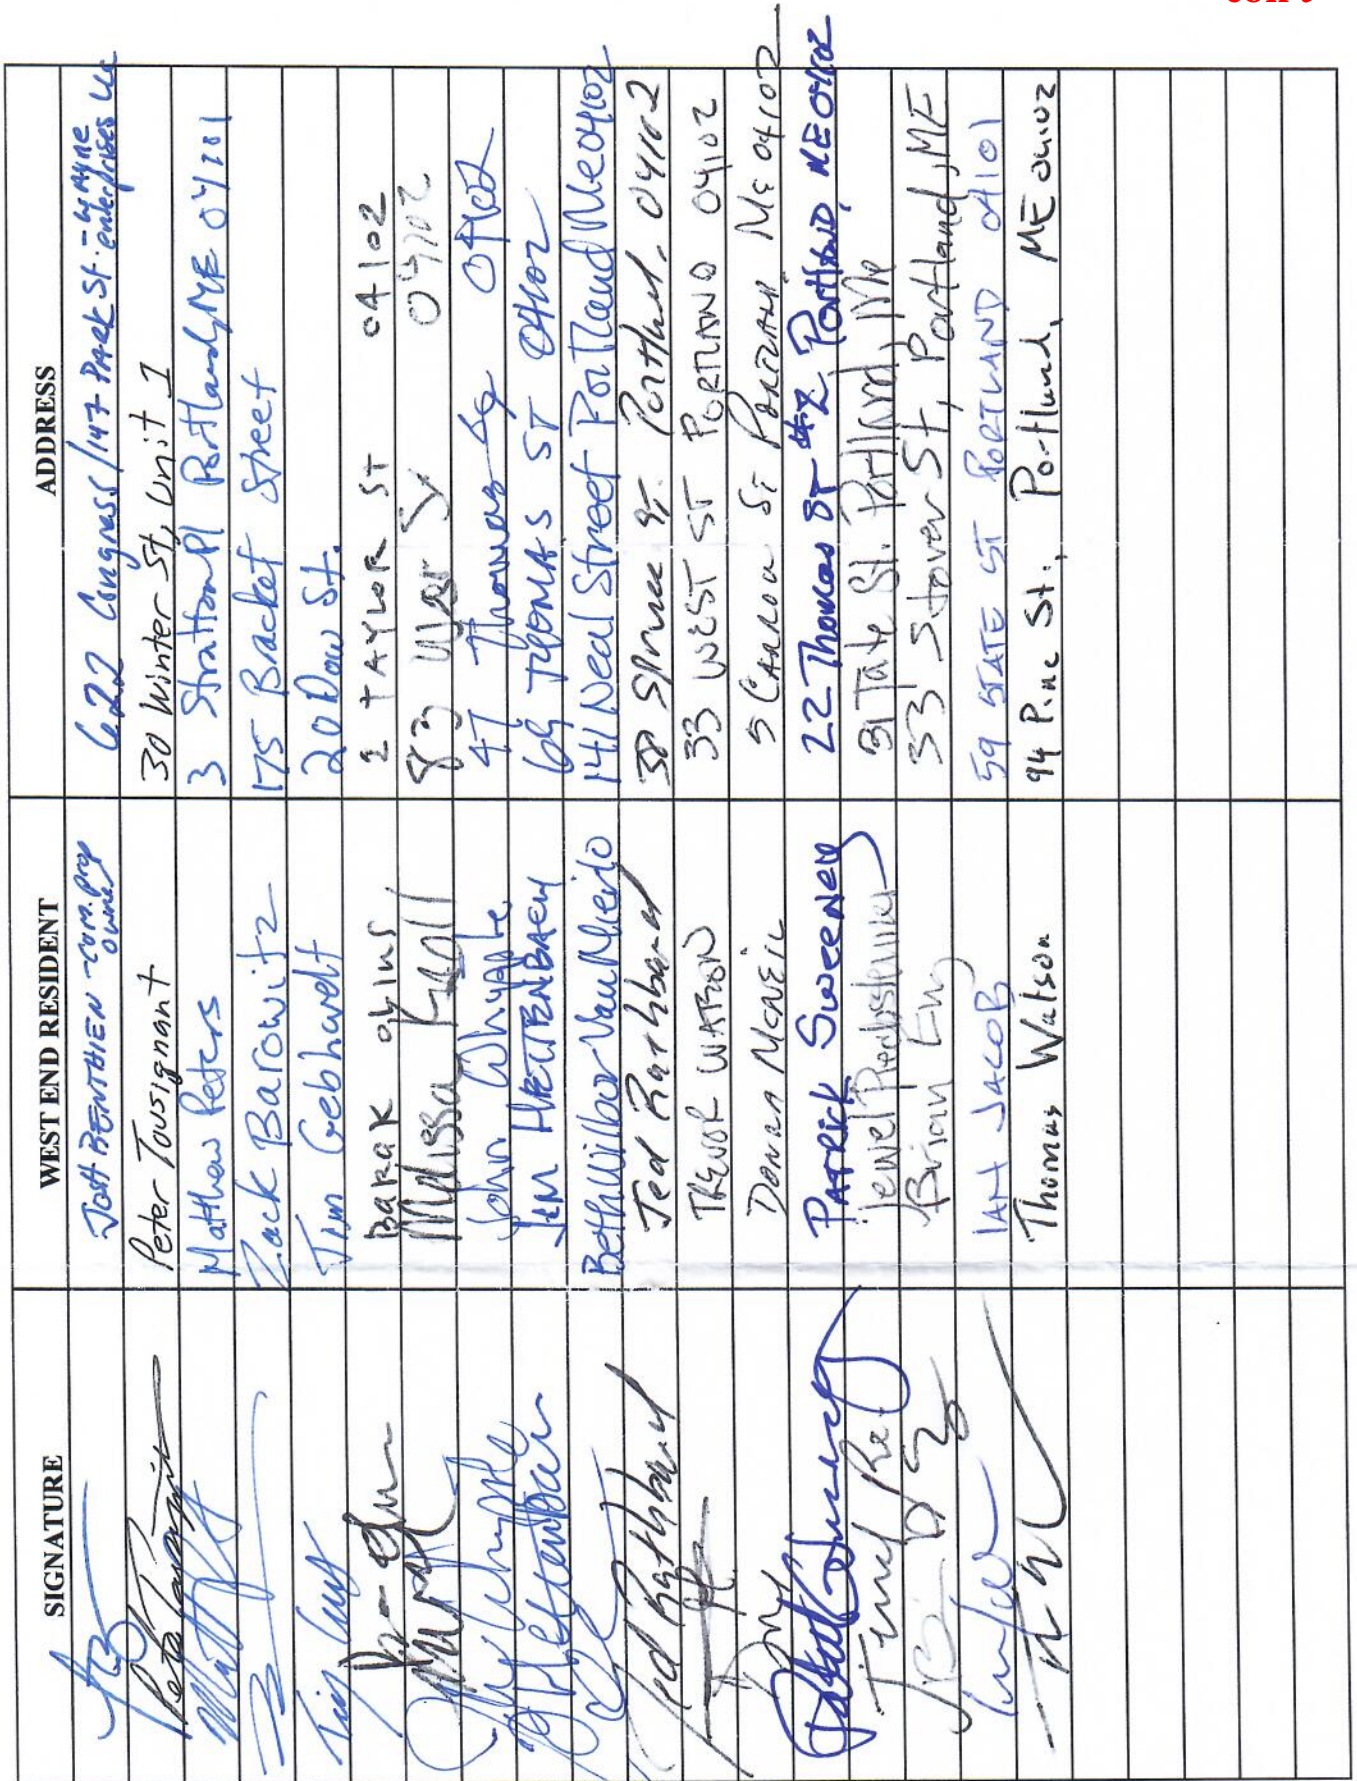 con't
SIGNATURE WEST END RESIDENT ADDRESS
JB Josh BENTHIEN - com. prop owner 622 Congress / 147 Park St. - enterprises llc
Peter Tousignant Peter Tousignant 30 Winter St, Unit 1
Matthew Peters 3 Stratton Pl Portland, ME 04101
Zack Barowitz 175 Bracket Street
Tim Gebhardt 20 Dow St.
Barak Olins 2 TAYLOR ST 04102
Melissa Knoll 83 04102
John Whipple 47 Thomas St 04102
Jim HALTENBAEU 69 THOMAS ST 04102
Beth Wilbur Van Mierlo 141 Neal Street Portland Me 04102
Ted Rathbard Ted Rathbard 38 Spruce St. Portland. 04102
TREVOR WATSON 33 WEST ST PORTLAND 04102
DONNA MCNEIL 5 CARROLL ST PORTLAND ME 04102
PATRICK SWEENEY 22 Thomas ST #2, PORTLAND, ME 04102
Jewel 31 Tate St. Portland, Me
Brian Eng 33 Stover St, Portland, ME
IAN JACOB 59 STATE ST PORTLAND 04101
Thomas Watson 94 Pine St., Portland, ME 04102